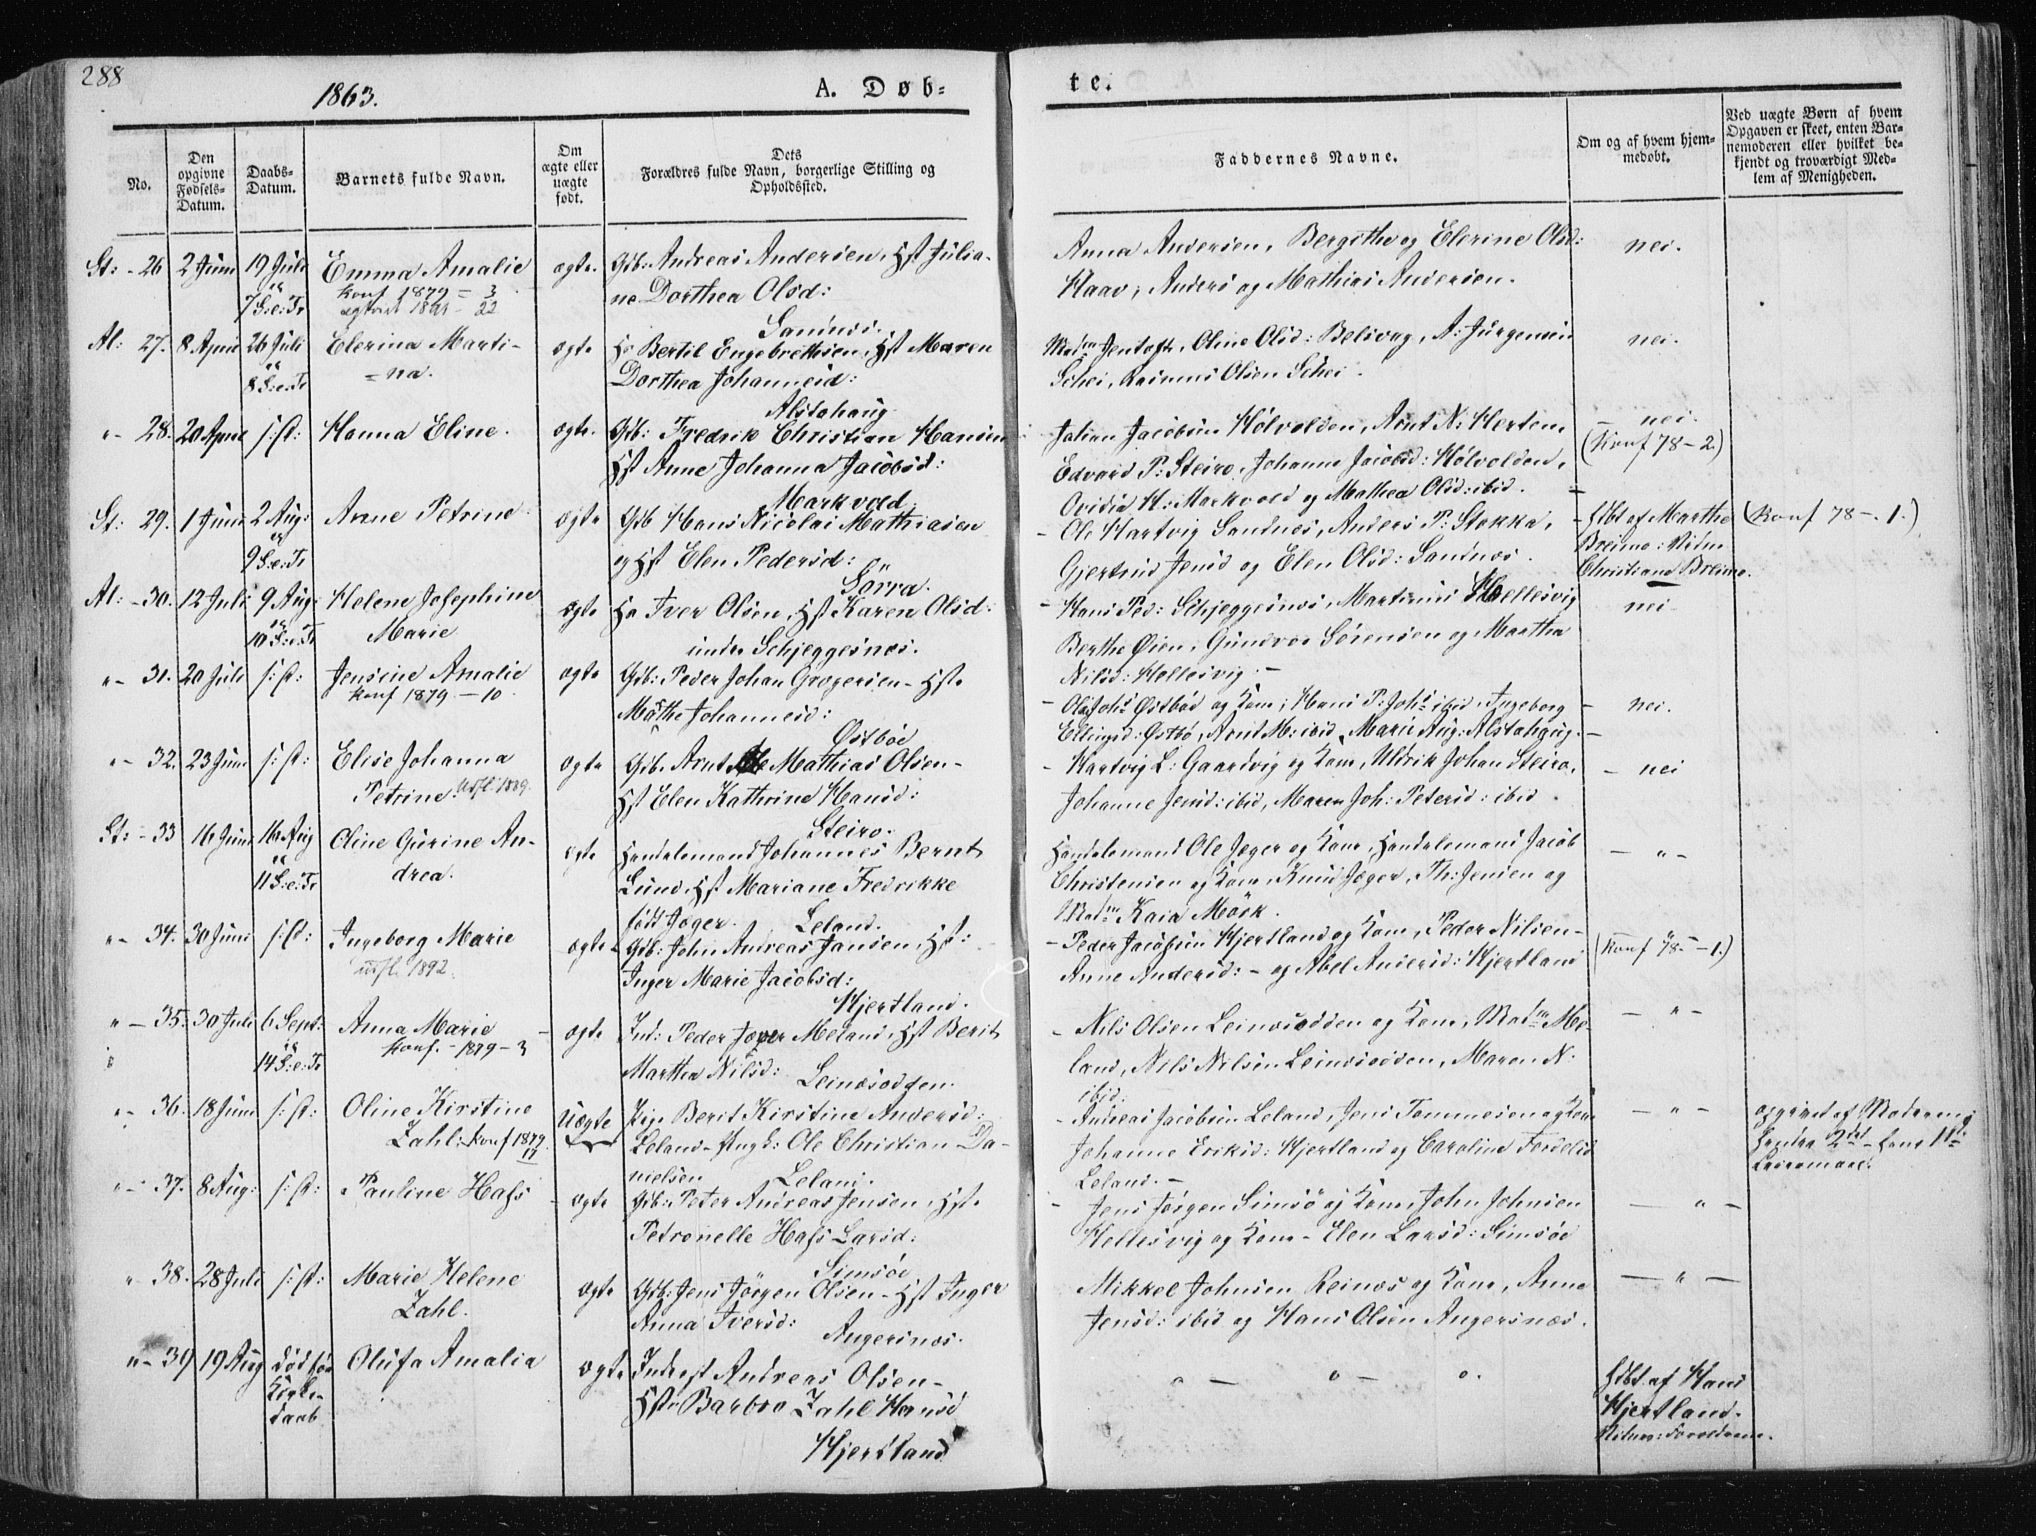 288
1863.
A. Døb=
te.
No.
Den opgivne Fødsels-Datum.
Daabs-Datum.
Barnets fulde Navn.
Om ægte eller uægte født.
Dets Forældres fulde Navn, borgerlige Stilling og Opholdssted.
Faddernes Navne.
Om og af hvem hjemmedøbt.
Ved uægte Børn af hvem Opgaven er skeet, enten Barnemoderen eller hvilket bekjendt og troværdigt Medlem af Menigheden.
St: - 26 2 Juni 19 Juli Emma Amalie ægte. Gdb: Andreas Andersen, Hst Julia-
7 S: e: Tr Konf 1879 = 3 ne Dorthea Olsd:
1891 - 22 Sandnes.
Anna Andersen, Bergithe og Elerine Olsd: nei.
Haav, Anders og Mathias Andersen.
Al: 27. 8 April 26 Juli Elerina Marti- ægte Hs Bertil Engebrethsen, Hst Maren
8 S: e: Tr = na. Dorthea Johannesd:
Alstahaug
Madm Jentoft, Oline Olsd: Belsvag, A: Jürgensen nei.
Schei, Rasmus Olsen Schei.
"- 28. 20 April s: st: Hanna Eline. ægte. Gdb: Fredrik Christian Hansen
Hst Anne Johanna Jacobsd:
Markvold
Johan Jacobsen Hölvolden, Arnt N: Herten, nei.
Edvard P: Steiro, Johanne Jacobsd: Hölvolden, (Konf 78 - 2.)
Ovidia H: Markvold og Mathea Olsd: ibid.
St: 29. 1 Juni 2 Aug: Anne Petrine ægte Gdb Hans Nicolai Mathiasen
9 S: e: Tr og Hst Elen Pedersd:
Sörra.
- Ole Hartvig Sandnes, Anders P: Stokka, Hdbt af Marthe (Konf 78 -. 1.)
Gjertrud Jensd og Elen Olsd: Sandnes. Breimo: Vidne
Christiane Breimo.
Al: - 30. 12 Juli 9 Aug: Helene Josephine ægte Hs Iver Olsen, Hst Karen Olsd:
10 S: e: Tr Marie under Schjeggesnes.
- Hans Ped: Schjeggesnes, Martinus Hellesvig nei.
Berthe Øien, Gundvor Sörensen og Martha
Nilsd: Hellesvig. -
"- 31. 20 Juli s: st: Jensine Amalie ægte Gdb: Peder Johan Gregersen - Hst.
Konf 1879 - 10. Marthe Johannesd:
Østbøe
- Ole Johs Østbøe og Kone, Hans P: Johs ibid, Ingeborg - nei.
Ellingsd: Østbø, Arnt M: ibid, Marie Aug: Alstahaug. -
"- 32. 23 Juni s: st: Elise Johanna ægte Gdb. Arnt Mathias Olsen -
Petrine. Utfl. 1889. Hst Elen Kathrine Hansd:
Steiro.
- Hartvig L: Gaardvig og Kone, Uldrik Johan Steiro, - nei
Johanne Jensd: ibid, Maren Joh: Petersd: ibid.
St: - 33 16 Juni 16 Aug Oline Gurine An- ægte Handelsmand Johannes Bernt
11 S: e: Tr drea. Lund, Hst Mariane Fredrikke
født Jæger. Leland.
Handelsmand Ole Jæger og Kone, Handelsmand Jacob - " -
Christensen og Kone, Knud Jæger, Th: Jensen og
Madm Kaia Mösk.
"- 34. 30 Juni s: st: Ingeborg Marie ægte Gdb: John Andreas Jansen, Hst:
utfl. 1892. Inger Marie Jacobsd:
Hjertland.
- Peder Jacobsen Hjertland og Kone, Peder Nilsen - "
Anne Andersd: - og Abel Andersd: Hjertland (Konf 78 - 1.)
" - 35. 30 Juli 6 Sept: Anna Marie - ægte Ind: Peder Jæger Meland, Hst Berit
14 S: e: Tr Konf. - 1879 - 3 Martha Nilsd: Leinesodden.
- Nils Olsen Leinesodden og Kone, Madm Me- - " -
land, Nils Nilsen Leinesodden, Maren N:
ibid.
"- 36. 18 Juni s: st: Oline Kirstine Uægte Pige Berit Kirstine Andersd:
Zahl. Konf 1879 Leland - Ungk: Ole Christian Da-
nielsen Leland.
- Andreas Jacobsen Leland, Jens Tommesen og Kone - " - opgivet af Moderen;
Johanne Eriksd: Hjertland og Caroline Fordelsd Hendes 2det - hans 1ste
Leland. - Leiermaal.
"- 37. 8 Aug: s: st: Pauline Hass - ægte Gdb: Peter Andreas Jensen, Hst.
Petronelle Hass Larsd:
Simsöe
- Jens Jørgen Simsö og Kone, John Johnsen - " -
Hellesvig og Kone - Elen Larsd: Simsöe
"- 38. 28 Juli s: st: Marie Helene ægte Gdb: Jens Jörgen Olsen - Hst Inger
Zahl. Anna Iversd: Angersnes.
Mikkel Johnsen Reines og Kone, Anne - " -
Jensd: ibid og Hans Olsen Angersnes.
"- 39 19 Aug død før Olufa Amalia ægte Inderst Andreas Olsen -
Kirke- Hst. Barbro Zahl Hansd
daab Hjertland
" - " - ". Hdbt. af Hans
Hjertland.